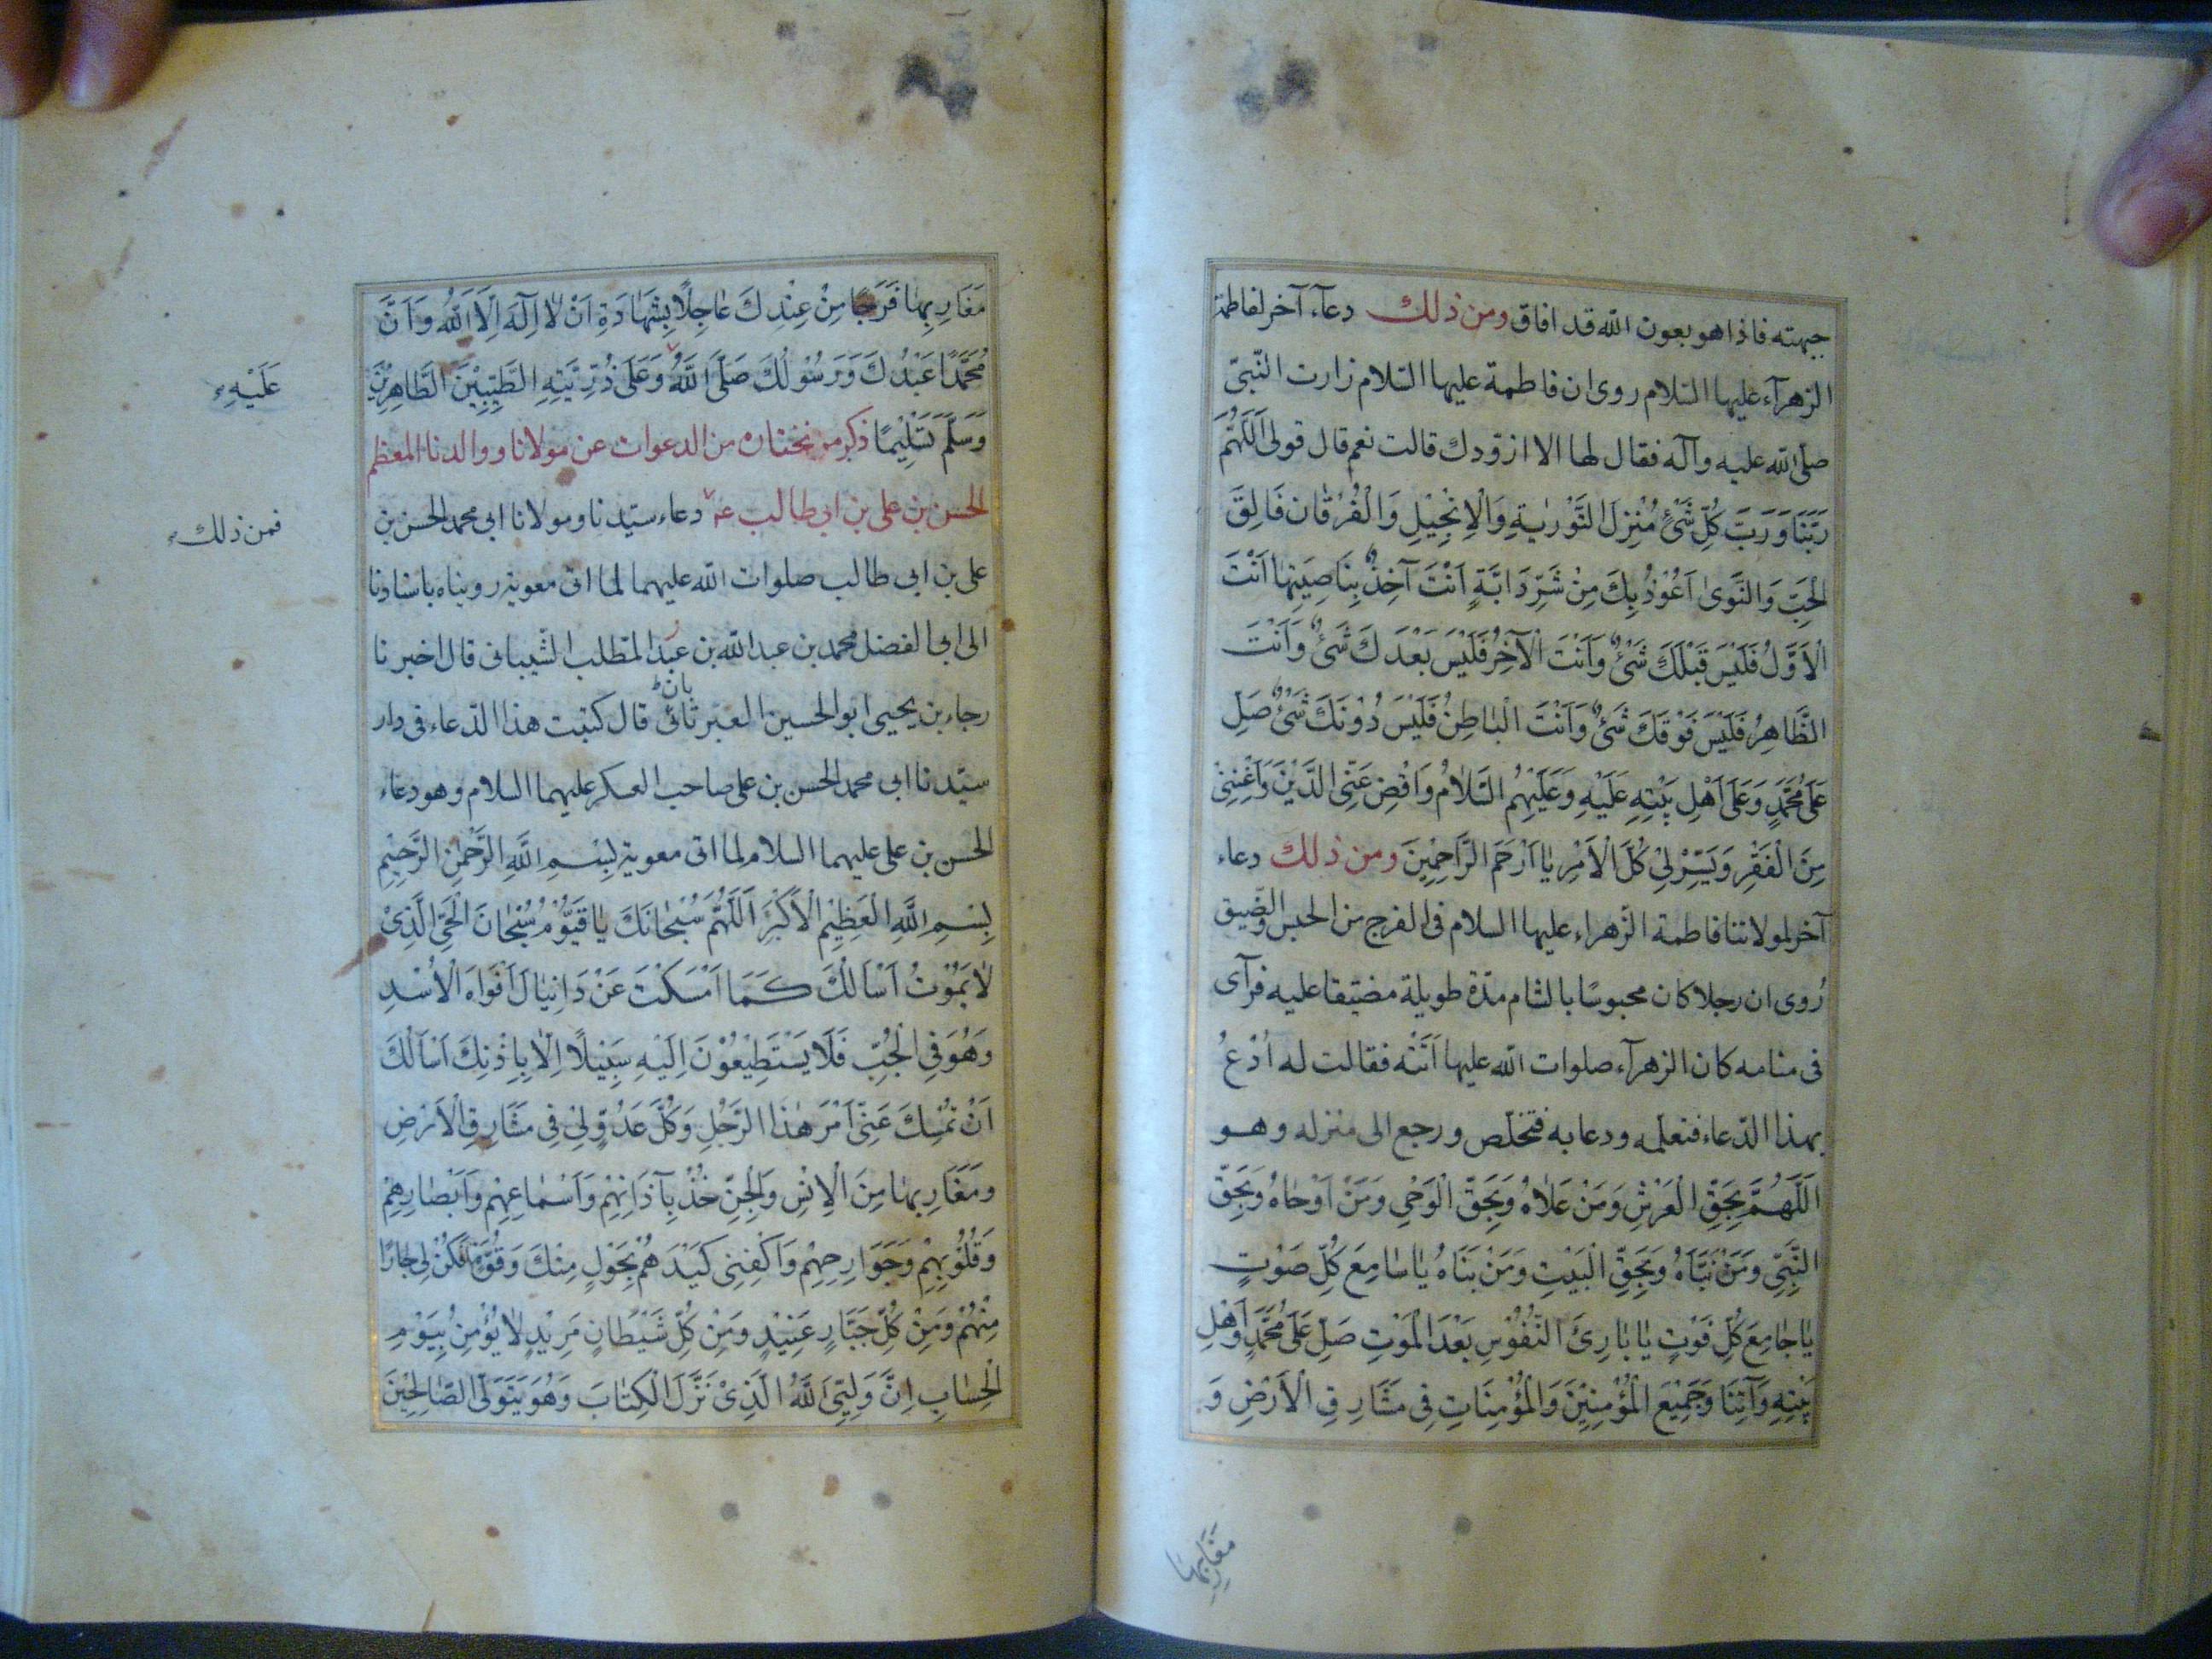 جبهته فاذا هو بعون الله قد افاق ومن ذلك دعآء آخر لفاطمة
الزهرآء عليها السّلام روى ان فاطمة عليها السّلام زارت النّبىّ
صلّى الله عليه وآله فقال لها الا ازوّدك قالت نعم قال قولى اَللّهُمَّ
رَبَّنَا وَرَبَّ كُلِّ شَىْءٍ مُنْزِلَ التَّوْرٰيةِ وَالْاِنْجِيْلِ وَالْفُرْقٰانِ فَالِقَ
الْحَبِّ وَالنَّوَىٰ اَعُوْذُ بِكَ مِنْ شَرِّ دَابَّةٍ اَنْتَ آخِذٌ بِنَاصِيَتِهٰا اَنْتَ
الْاَوَّلُ فَلَيْسَ قَبْلَكَ شَىْءٌ وَاَنْتَ الْآخِرُ فَلَيْسَ بَعْدَكَ شَىْءٌ وَاَنْتَ
الظَّاهِرُ فَلَيْسَ فَوْقَكَ شَىْءٌ وَاَنْتَ الْبٰاطِنُ فَلَيْسَ دُوْنَكَ شَىْءٌ صَلِّ
عَلىٰ مُحَمَّدٍ وَعَلىٰ اَهْلِ بَيْتِهِ عَلَيْهِ وَعَلَيْهِمُ السَّلَامُ وَاقْضِ عَنِّى الدَّيْنَ وَاَغْنِنِىْ
مِنَ الْفَقْرِ وَيَسِّرْ لِىْ كُلَّ الْاَمْرِ يٰا اَرْحَمَ الرَّاحِمِيْنَ ومن ذلك دعاء
آخر لمولاتنا فاطمة الزّهراء عليها السلام فى الفرج من الحبس والضّيق
رُوى ان رجلا كان محبوسًا بالشام مدّة طويلة مضيّقا عليه فرآى
فى منامه كان الزهرآء صلوات الله عليها اَتَتْه فقالت له اُدْعُ
بهذا الدّعاء فتعلّمه ودعا به فتخلّص ورجع الى منزله وهو
اَللّٰهُمَّ بِحَقِّ الْعَرْشِ وَمَنْ عَلَاهُ وَبِحَقِّ الْوَحْىِ وَمَنْ اَوْحَاهُ وَبِحَقِّ
النَّبِىِّ وَمَنْ نَبَّاَهُ وَبِحَقِّ الْبَيْتِ وَمَنْ بَنَاهُ يٰا سٰامِعَ كُلِّ صَوْتٍ
يٰا جٰامِعَ كُلِّ فَوْتٍ يٰا بٰارِئَ النُّفُوْسِ بَعْدَ الْمَوْتِ صَلِّ عَلىٰ مُحَمَّدٍ وَاَهْلِ
بَيْتِهِ وَآتِنَا وَجَمِيْعَ الْمُؤْمِنِيْنَ وَالْمُؤْمِنَاتِ فِى مَشَارِقِ الْاَرْضِ وَ
مَغَارِبِهٰا
مَغَارِبِهٰا فَرَجًا مِنْ عِنْدِكَ عٰاجِلًا بِشَهَادَةِ اَنْ لَا اِلٰهَ اِلَّا اللهُ وَاَنَّ
مُحَمَّدًا عَبْدُكَ وَرَسُوْلُكَ صَلَّى اللهُ وَعَلىٰ ذُرِّيَّتِهِ الطَّيِّبِيْنَ الطَّاهِرِيْنَ
عَلَيْهِ
وَسَلَّمَ تَسْلِيْمًا ذكر مو نختاره من الدعوات عن مولانا ووالدنا المعظم
الحسن بن على بن ابى طالب ع دعاء سيّدنا ومولانا ابى محمد الحسن بن
فمن ذلك
على بن ابى طالب صلوات الله عليهما لما اتى معوية رويناه باسنادنا
الى ابى الفضل محمد بن عبد الله بن عبد المطّلب الشّيبانى قال اخبرنا
رجاء بن يحيى ابو الحسين العبرتائى قال كتبت هذا الدّعاء فى دار
سيّدنا ابى محمد الحسن بن على صاحب العسكر عليهما السلام وهو دعاء
الحسن بن على عليهما السلام لما اتى معوية بِسْمِ اللهِ الرَّحْمٰنِ الرَّحِيْمِ
بِسْمِ اللهِ الْعَظِيْمِ الْاَكْبَرِ اَللّٰهُمَّ سُبْحَانَكَ يٰا قَيُّوْمُ سُبْحَانَ الْحَىِّ الَّذِىْ
لَا يَمُوْتُ اَسْاَلُكَ كَمَا اَمْسَكْتَ عَنْ دَانِيٰالَ اَفْوَاهَ الْاُسْدِ
وَهُوَ فِى الْجُبِّ فَلَا يَسْتَطِيْعُوْنَ اِلَيْهِ سَبِيْلًا اِلَّا بِاِذْنِكَ اَسْاَلُكَ
اَنْ تُمْسِكَ عَنِّى اَمْرَ هٰذَا الرَّجُلِ وَكُلَّ عَدُوٍّ لِىْ فِى مَشَارِقِ الْاَرْضِ
وَمَغَارِبِهٰا مِنَ الْاِنْسِ وَالْجِنِّ خُذْ بِآذَانِهِمْ وَاَسْمٰاعِهِمْ وَاَبْصٰارِهِمْ
وَقُلُوْبِهِمْ وَجَوَارِحِهِمْ وَاكْفِنِى كَيْدَهُمْ بِحَوْلٍ مِنْكَ وَقُوَّةٍ فَكُنْ لِى جَارًا
مِنْهُمْ وَمِنْ كُلِّ جَبَّارٍ عَنِيْدٍ وَمِنْ كُلِّ شَيْطٰانٍ مَرِيْدٍ لَا يُؤْمِنُ بِيَوْمِ
الْحِسٰابِ اِنَّ وَلِيِّىَ اللهُ الَّذِىْ نَزَّلَ الْكِتٰابَ وَهُوَ يَتَوَلَّى الصّٰالِحِيْنَ